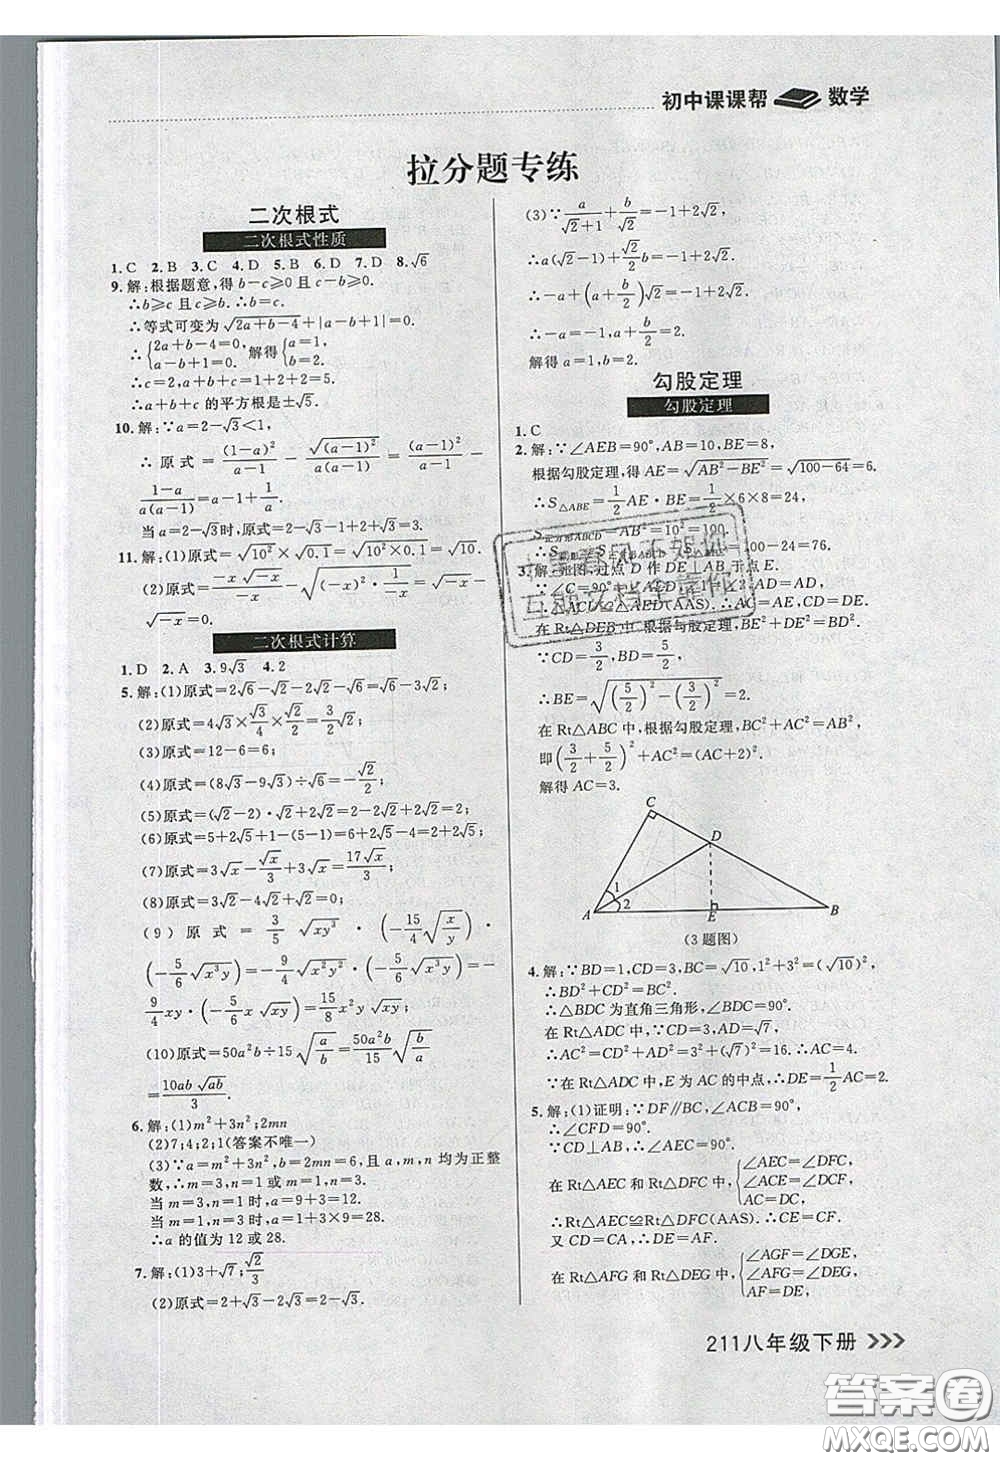 初中课课帮 数学
拉分题专练
二次根式
二次根式性质
1.C 2.B 3.C 4.D 5.B 6.D 7.D 8.√6
9.解:根据题意,得 b−c≥0 且 c−b≥0.
∴b≥c 且 c≥b. ∴b=c.
∴等式可变为 √(2a+b−4)+|a−b+1|=0.
∴{2a+b−4=0, a−b+1=0. 解得{a=1, b=2.
∴c=2,a+b+c=1+2+2=5.
∴a+b+c 的平方根是±√5.
10.解:∵a=2−√3<1,
∴原式=(1−a)²/(a−1)−√((a−1)²)/(a(a−1))=(a−1)²/(a−1)−
(1−a)/(a(a−1))=a−1+1/a.
当 a=2−√3时,原式=2−√3−1+2+√3=3.
11.解:(1)原式=√(10²×0.1)=√(10²×0.1)=√10.
(2)原式=(−x√(−x))/(−x)−√((−x)²·1/(−x))=√(−x)−
√(−x)=0.
二次根式计算
1.D 2.A 3.9√3 4.2
5.解:(1)原式=2√6−√2−2√2−√6=√6−3√2;
(2)原式=4√3×√3/4×√2/2=3/2√2;
(3)原式=12−6=6;
(4)原式=(8√3−9√3)÷√6=−√2/2;
(5)原式=(√2−2)·√2+2√2=2−2√2+2√2=2;
(6)原式=5+2√5+1−(5−1)=6+2√5−4=2+2√5;
(7)原式=3√x−√x/3+3√x=17√x/3;
(8)原式=3√2−4√2+√2=0;
(9)原式=3/5√(xy³)·(−15/4√(x/y))
·(−5/6√(x³y))=−9/4√(x²y²)·(−5/6√(x³y))=−
9/4xy·(−5/6x√(xy))=15/8x²y√(xy);
(10)原式=50a²b÷15√(a/b)=50a²b/15√(b/a)
=10ab√(ab)/3.
6.解:(1)m²+3n²;2mn
(2)7;4;2;1(答案不唯一)
(3)∵a=m²+3n²,b=2mn=6,且 a,m,n 均为正整
数,∴m=3,n=1 或 m=1,n=3.
当 m=3,n=1 时,a=9+3=12.
当 m=1,n=3 时,a=1+3×9=28.
∴a 的值为 12 或 28.
7.解:(1)3+√7;√2/3
(2)原式=2+√3−2√3=2−√3.
(3)∵a/(√2+1)+b/√2=−1+2√2,
∴a(√2−1)+√2/2b=−1+2√2.
∴−a+(a+b/2)√2=−1+2√2.
∴−a=−1,a+b/2=2.
解得 a=1,b=2.
勾股定理
勾股定理
1.C
2.解:∵∠AEB=90°,AB=10,BE=8,
根据勾股定理,得 AE=√(AB²−BE²)=√(100−64)=6.
∴S△ABE=1/2AE·BE=1/2×6×8=24,
S正方形ABCD=AB²=10²=100.
=100−24=76.
3.解:如图,过点 D 作 DE⊥AB 于点 E.
∵∠C=90°,∠1=∠2,AD=AD,
∴△ACD≌△AED(AAS). ∴CD=DE,AC=AE.
在 Rt△DEB 中,根据勾股定理,BE²+DE²=BD².
∵CD=3/2,BD=5/2,
∴BE=√((5/2)²−(3/2)²)=2.
在 Rt△ABC 中,根据勾股定理,BC²+AC²=AB²,
即(3/2+5/2)²+AC²=(AC+2)².
解得 AC=3.
C
D
1
2
A E B
(3题图)
4.解:∵BD=1,CD=3,BC=√10,1²+3²=(√10)²,
∴BD²+CD²=BC².
∴△BDC 为直角三角形,∠BDC=90°.
在 Rt△ADC 中,∵CD=3,AD=√7,
∴AC²=CD²+AD²=3²+(√7)²=16. ∴AC=4.
∵在 Rt△ADC 中,E 为 AC 的中点,∴DE=1/2AC=2.
5.解:(1)证明:∵DF∥BC,∠ACB=90°,
∴∠CFD=90°.
∵CD⊥AB,∴∠AEC=90°.
在 Rt△AEC 和 Rt△DFC 中,{∠AEC=∠DFC, ∠ACE=∠DCF, AC=DC,
∴Rt△AEC≌Rt△DFC(AAS). ∴CE=CF.
又 CD=CA,∴DE=AF.
在 Rt△AFG 和 Rt△DEG 中,{∠AGF=∠DGE, ∠AFG=∠DEG, AF=DE,
211八年级下册
答案圈
MXQE.COM